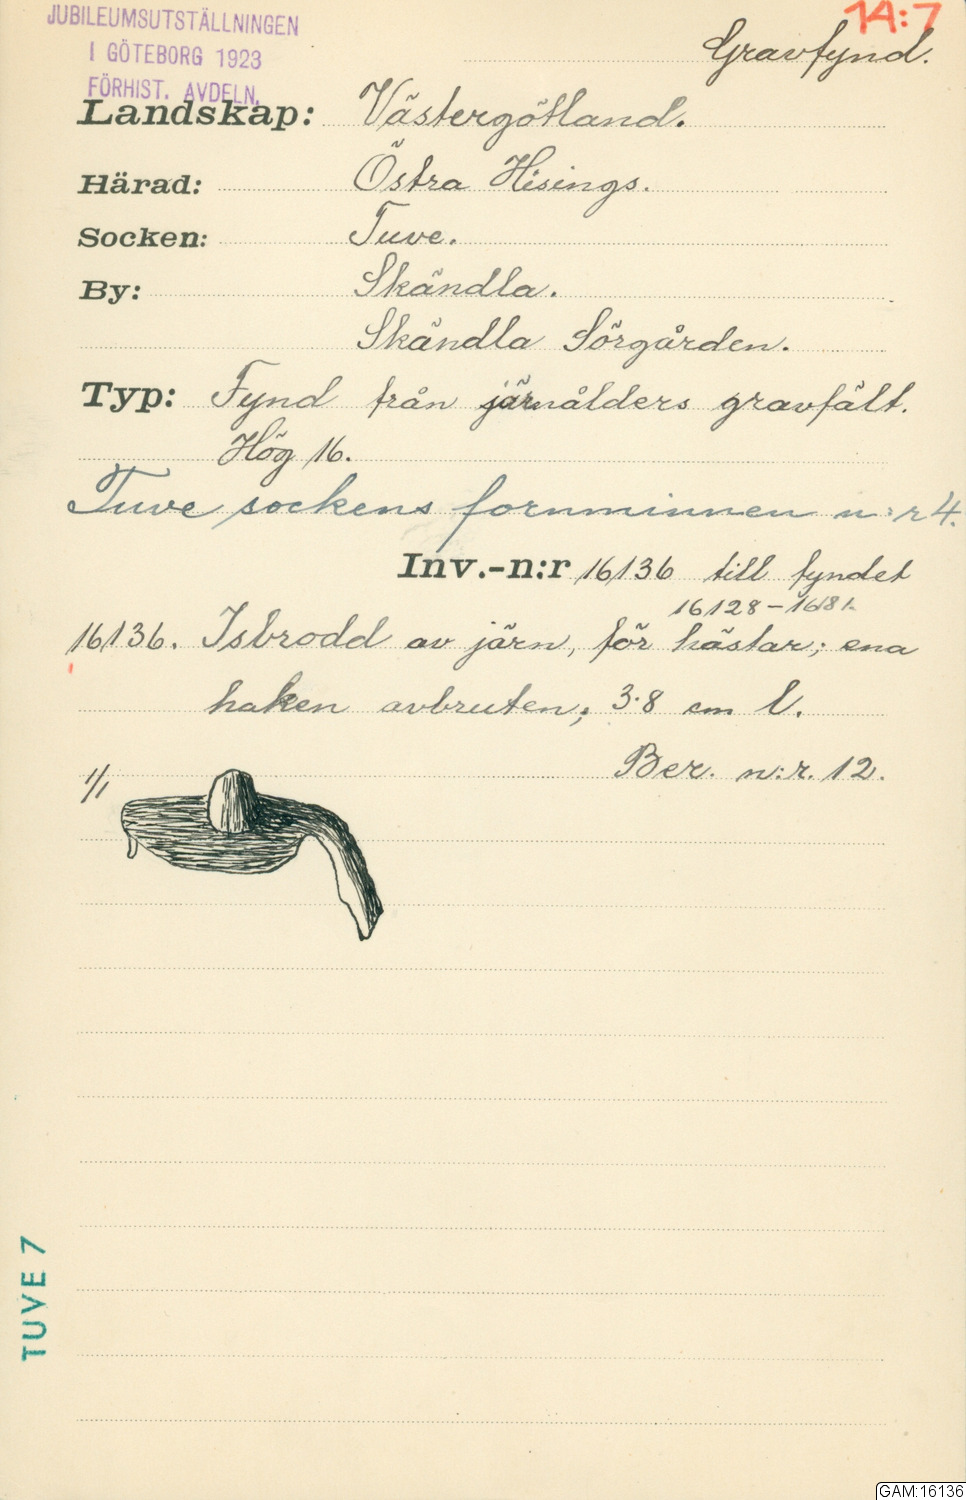 JUBILEUMSUTSTÄLLNINGEN
I GÖTEBORG 1923
FÖRHIST. AVDELN.
14:7
Gravfynd.
Landskap: Västergötland.
Härad: Östra Hisings.
Socken: Tuve.
By: Skändla.
Skändla Sörgården.
Typ: Fynd från järnålders gravfält.
Hög 16.
Tuve sockens fornminnen n:r 4.
Inv.-n:r 16136 till fyndet
16128-16181.
16136. Isbrodd av järn, för hästar; ena
haken avbruten; 3.8 cm l.
Ber. n:r. 12.
1/1
TUVE 7
GAM:16136